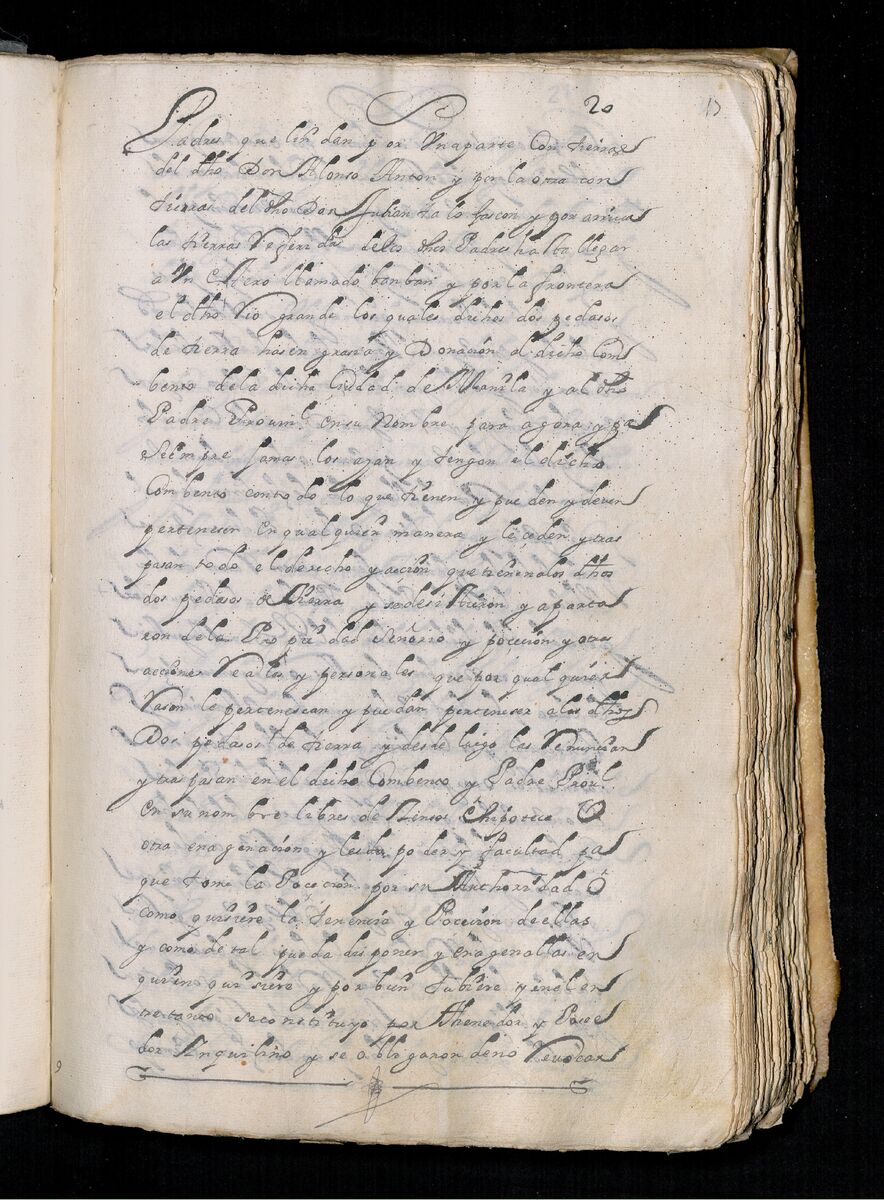 20
13
Padres que lindan por Una parte Con tierras
del dho Don Alonso Anton y por la otra con
tierras del dho Don Julian y por arriva
las tierras Veferidas delos dhos Padres hasta llegar
a Un estero llamado banban y por la frontera
el dho Vio grande los quales dichos dos pedasos
de tierra hasen grasia y Donación al dicho Com
bento dela dicha Ciudad de Manila y al dho
Padre Prouinl. en su Nombre para agora y pa
Siempre jamas los ayan y tengan el dicho
Combento con todo lo que tienen y pueden y deven
perteneser en qualquier manera y le ceden y tras
pasan todo el derecho y acción que tienen a los dhos
dos pedasos de tierra y se desistieron y aparta
ron de la Propiedad Señorio y poceción y otras
acciones Veales y personales que por qualquier
Vasón le pertenescan y puedan perteneser a los dhos
Dos pedasos de tierra y desde luego las Venuncian
y traspasan en el dicho Combento y Padre Proul.
en su nombre libres de Sensos Chipoteca O
otra enagenación y les da poder y facultad pa
que tome la Poceción por su Authoridad O
como quisiere la tenencia y Poceción de ellas
y como de tal pueda disponer y enagenallas en
quien quisiere y por bien tubiere y en el en
tretanto se constituyo por thenedor y Posee
dor Ynquilino y se obligaron de no Vevocar
9